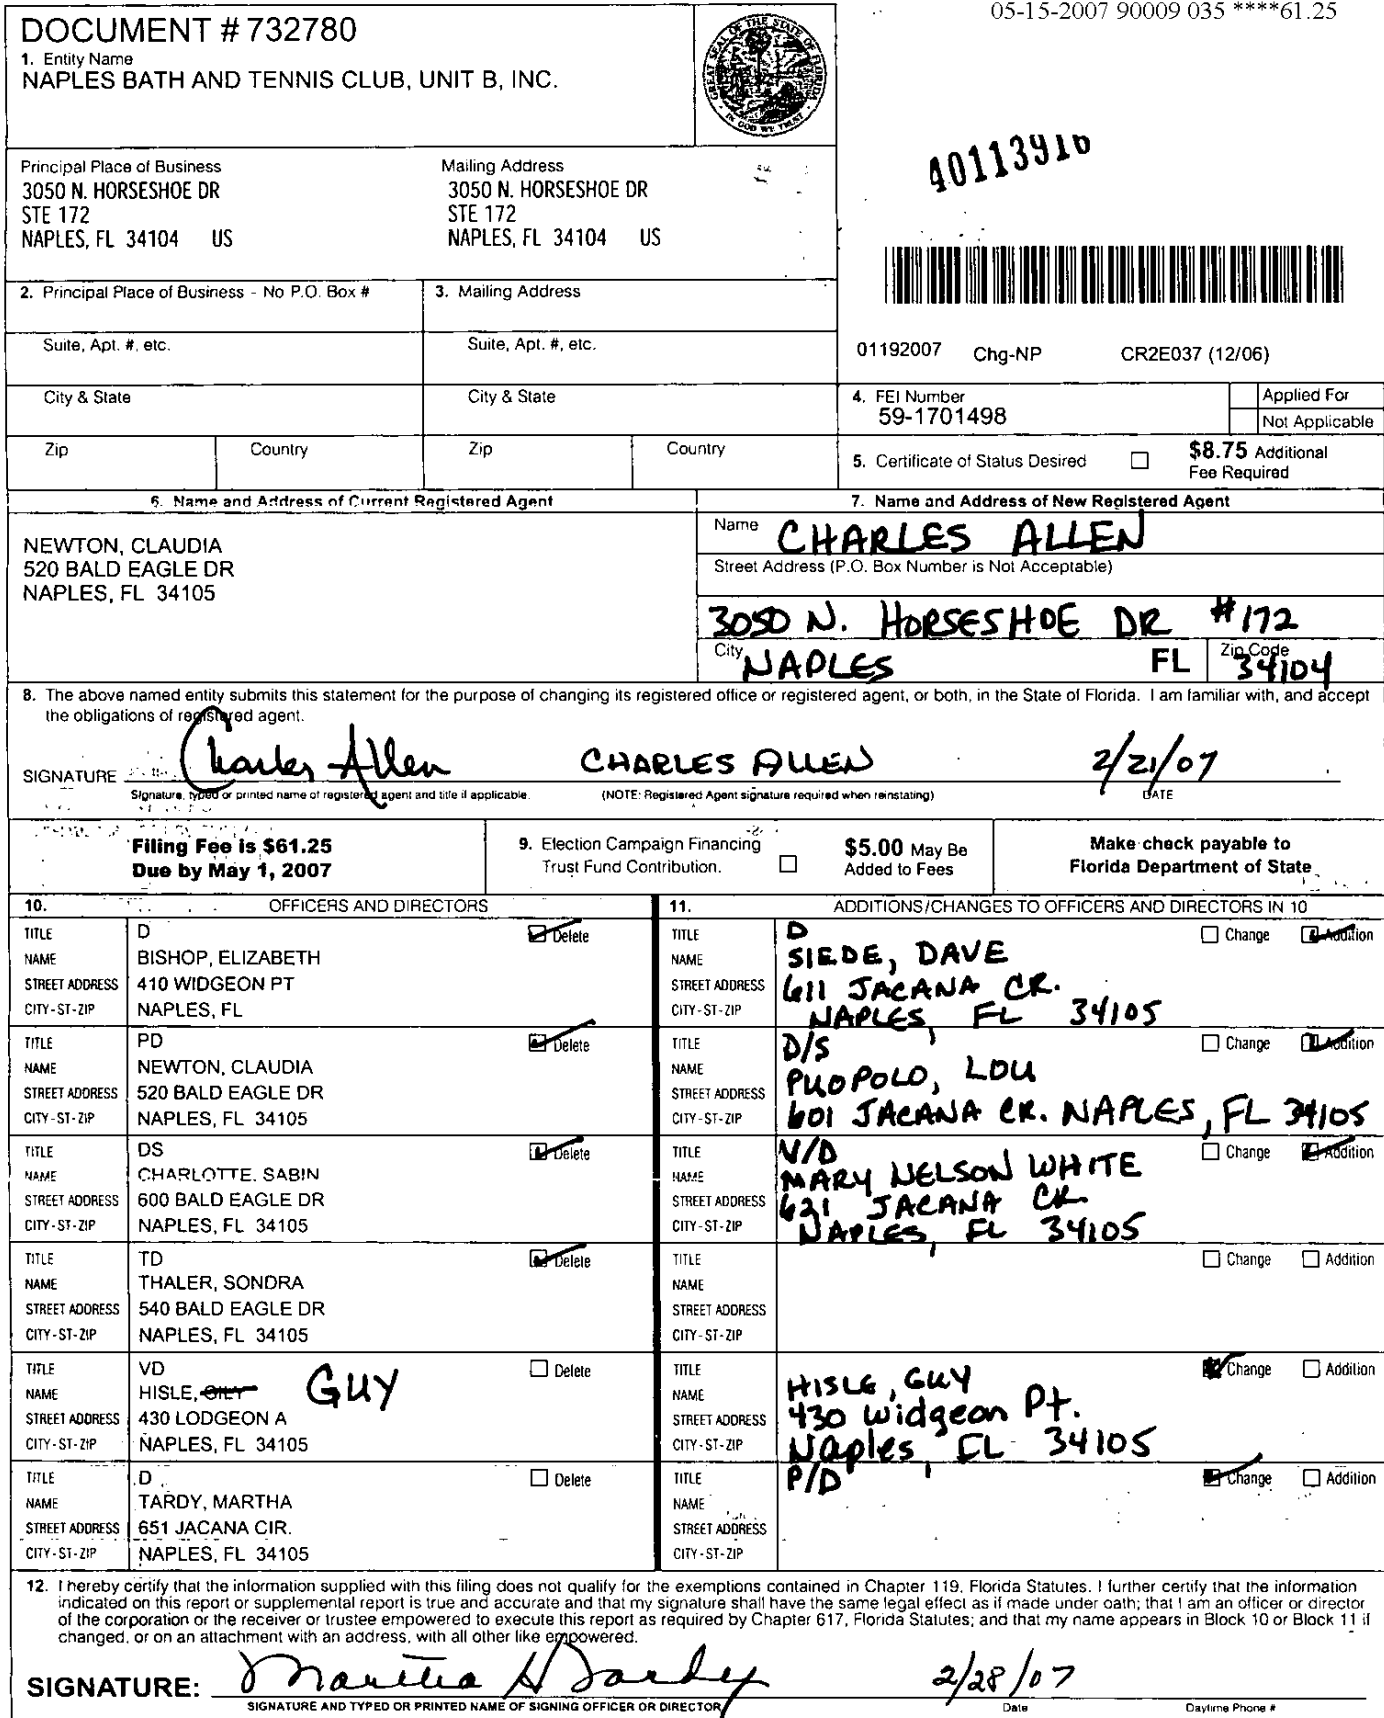 05-15-2007 90009 035 ****61.25
DOCUMENT # 732780
1. Entity Name
NAPLES BATH AND TENNIS CLUB, UNIT B, INC.
GREAT SEAL OF THE STATE OF FLORIDA
IN GOD WE TRUST
40113916
Principal Place of Business
3050 N. HORSESHOE DR
STE 172
NAPLES, FL 34104 US
Mailing Address
3050 N. HORSESHOE DR
STE 172
NAPLES, FL 34104 US
2. Principal Place of Business - No P.O. Box #
3. Mailing Address
Suite, Apt. #, etc.
Suite, Apt. #, etc.
01192007 Chg-NP CR2E037 (12/06)
City & State
City & State
4. FEI Number
59-1701498
Applied For
Not Applicable
Zip Country
Zip Country
5. Certificate of Status Desired
$8.75 Additional
Fee Required
6. Name and Address of Current Registered Agent
NEWTON, CLAUDIA
520 BALD EAGLE DR
NAPLES, FL 34105
7. Name and Address of New Registered Agent
Name CHARLES ALLEN
Street Address (P.O. Box Number is Not Acceptable)
3050 N. HORSESHOE DR #172
City NAPLES FL Zip Code 34104
8. The above named entity submits this statement for the purpose of changing its registered office or registered agent, or both, in the State of Florida. I am familiar with, and accept
the obligations of registered agent.
SIGNATURE Charles Allen CHARLES ALLEN 2/21/07
Signature, typed or printed name of registered agent and title if applicable. (NOTE: Registered Agent signature required when reinstating) DATE
Filing Fee is $61.25
Due by May 1, 2007
9. Election Campaign Financing
Trust Fund Contribution.
$5.00 May Be
Added to Fees
Make check payable to
Florida Department of State
10. OFFICERS AND DIRECTORS
11. ADDITIONS/CHANGES TO OFFICERS AND DIRECTORS IN 10
TITLE D Delete
NAME BISHOP, ELIZABETH
STREET ADDRESS 410 WIDGEON PT
CITY-ST-ZIP NAPLES, FL
TITLE D Change Addition
NAME SIEDE, DAVE
STREET ADDRESS 611 JACANA CR.
CITY-ST-ZIP NAPLES, FL 34105
TITLE PD Delete
NAME NEWTON, CLAUDIA
STREET ADDRESS 520 BALD EAGLE DR
CITY-ST-ZIP NAPLES, FL 34105
TITLE D/S Change Addition
NAME PUOPOLO, LOU
STREET ADDRESS
CITY-ST-ZIP 601 JACANA CR. NAPLES, FL 34105
TITLE DS Delete
NAME CHARLOTTE, SABIN
STREET ADDRESS 600 BALD EAGLE DR
CITY-ST-ZIP NAPLES, FL 34105
TITLE V/D Change Addition
NAME MARY NELSON WHITE
STREET ADDRESS 621 JACANA CR.
CITY-ST-ZIP NAPLES, FL 34105
TITLE TD Delete
NAME THALER, SONDRA
STREET ADDRESS 540 BALD EAGLE DR
CITY-ST-ZIP NAPLES, FL 34105
TITLE Change Addition
NAME
STREET ADDRESS
CITY-ST-ZIP
TITLE VD Delete
NAME HISLE, GUY
STREET ADDRESS 430 LODGEON A
CITY-ST-ZIP NAPLES, FL 34105
TITLE Change Addition
NAME HISLE, GUY
STREET ADDRESS 430 Widgeon Pt.
CITY-ST-ZIP Naples, FL 34105
TITLE D Delete
NAME TARDY, MARTHA
STREET ADDRESS 651 JACANA CIR.
CITY-ST-ZIP NAPLES, FL 34105
TITLE P/D Change Addition
NAME
STREET ADDRESS
CITY-ST-ZIP
12. I hereby certify that the information supplied with this filing does not qualify for the exemptions contained in Chapter 119, Florida Statutes. I further certify that the information
indicated on this report or supplemental report is true and accurate and that my signature shall have the same legal effect as if made under oath; that I am an officer or director
of the corporation or the receiver or trustee empowered to execute this report as required by Chapter 617, Florida Statutes; and that my name appears in Block 10 or Block 11 if
changed, or on an attachment with an address, with all other like empowered.
SIGNATURE: Martha H Tardy 2/28/07
SIGNATURE AND TYPED OR PRINTED NAME OF SIGNING OFFICER OR DIRECTOR Date Daytime Phone #